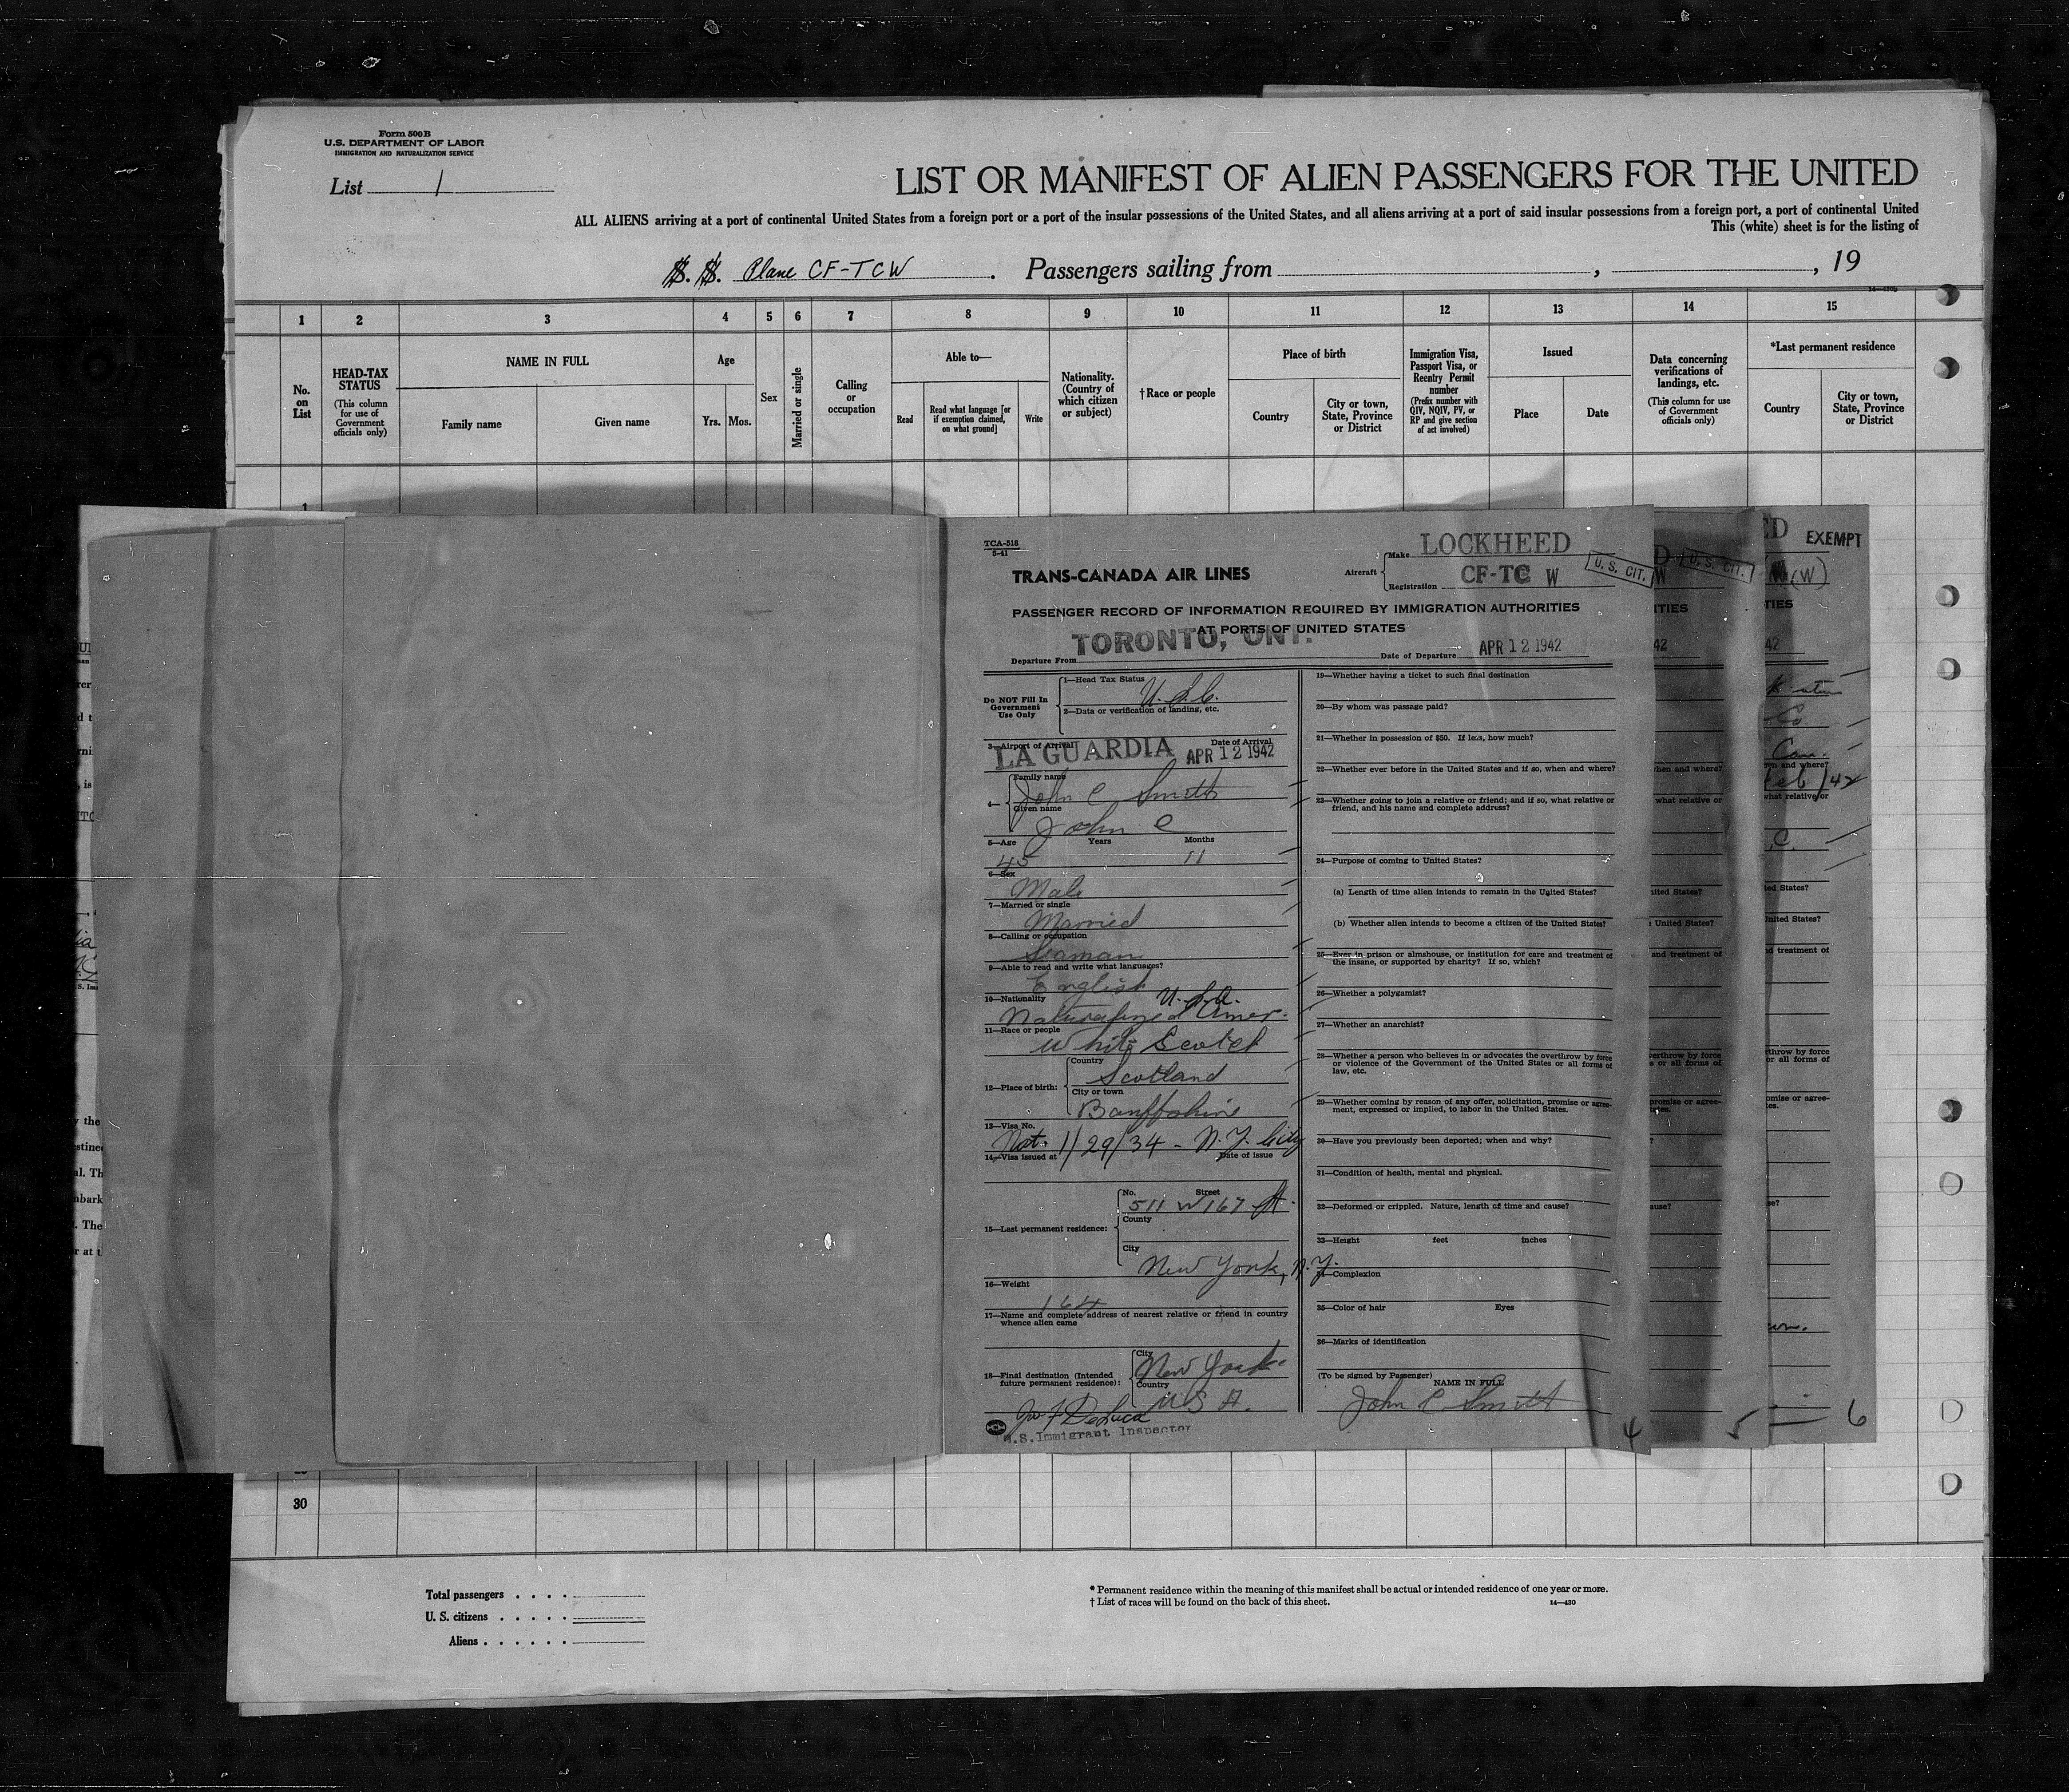 Form 500B
U.S. DEPARTMENT OF LABOR
IMMIGRATION AND NATURALIZATION SERVICE
List 1
LIST OR MANIFEST OF ALIEN PASSENGERS FOR THE UNITED
ALL ALIENS arriving at a port of continental United States from a foreign port or a port of the insular possessions of the United States, and all aliens arriving at a port of said insular possessions from a foreign port, a port of continental United
This (white) sheet is for the listing of
S. S. Plane CF-TCW . Passengers sailing from , , 19
1 2 3 4 5 6 7 8 9 10 11 12 13 14 15
No. on List
HEAD-TAX STATUS
(This column for use of Government officials only)
NAME IN FULL
Family name
Given name
Age
Yrs. Mos.
Sex
Married or single
Calling or occupation
Able to—
Read
Read what language [or if exemption claimed, on what ground]
Write
Nationality. (Country of which citizen or subject)
†Race or people
Place of birth
Country
City or town, State, Province or District
Immigration Visa, Passport Visa, or Reentry Permit number
(Prefix number with QIV, NQIV, PV, or RP and give section of act involved)
Issued
Place
Date
Data concerning verifications of landings, etc.
(This column for use of Government officials only)
*Last permanent residence
Country
City or town, State, Province or District
1
TCA-518
5-41
TRANS-CANADA AIR LINES
Aircraft
Make LOCKHEED
Registration CF-TC W
U. S. CIT.
U. S. CIT.
EXEMPT
(W)
PASSENGER RECORD OF INFORMATION REQUIRED BY IMMIGRATION AUTHORITIES
AT PORTS OF UNITED STATES
Departure From TORONTO, ONT.
Date of Departure APR 12 1942
Do NOT Fill In Government Use Only
1—Head Tax Status U.S.C.
2—Data or verification of landing, etc.
3—Airport of Arrival LA GUARDIA
Date of Arrival APR 12 1942
4—
Family name John C Smith
Given name John C
5—Age Years 45 Months 11
6—Sex Male
7—Married or single Married
8—Calling or occupation Seaman
9—Able to read and write what languages? English
10—Nationality U.S.A. Naturalized Amer.
11—Race or people White Scotch
12—Place of birth:
Country Scotland
City or town Banffshire
13—Visa No. Nat. 1/29/34 - N.Y. City
14—Visa issued at Date of issue
15—Last permanent residence:
No. Street 511 W 167 St.
County
City New York, N.Y.
16—Weight 164
17—Name and complete address of nearest relative or friend in country whence alien came
18—Final destination (Intended future permanent residence):
City New York
Country U S A.
DeLuca
U.S. Immigrant Inspector
19—Whether having a ticket to such final destination
20—By whom was passage paid?
21—Whether in possession of $50. If less, how much?
22—Whether ever before in the United States and if so, when and where?
23—Whether going to join a relative or friend; and if so, what relative or friend, and his name and complete address?
24—Purpose of coming to United States?
(a) Length of time alien intends to remain in the United States?
(b) Whether alien intends to become a citizen of the United States?
25—Ever in prison or almshouse, or institution for care and treatment of the insane, or supported by charity? If so, which?
26—Whether a polygamist?
27—Whether an anarchist?
28—Whether a person who believes in or advocates the overthrow by force or violence of the Government of the United States or all forms of law, etc.
29—Whether coming by reason of any offer, solicitation, promise or agreement, expressed or implied, to labor in the United States.
30—Have you previously been deported; when and why?
31—Condition of health, mental and physical.
32—Deformed or crippled. Nature, length of time and cause?
33—Height feet inches
34—Complexion
35—Color of hair Eyes
36—Marks of identification
(To be signed by Passenger) NAME IN FULL
John C Smith
4 5 6
30
Total passengers
U. S. citizens
Aliens
* Permanent residence within the meaning of this manifest shall be actual or intended residence of one year or more.
† List of races will be found on the back of this sheet.
14—430